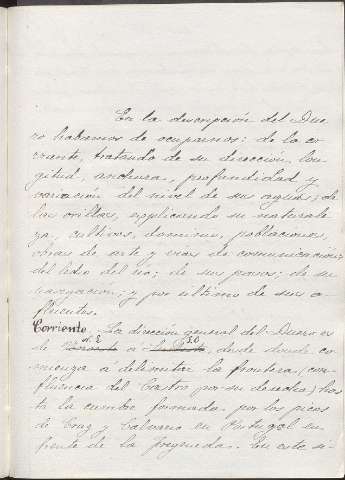 En la descripcion del Due-
ro habamos de ocuparnos: de la co-
rriente, tratando de su direccion, lon-
gitud, anchura, profundidad y
variacion del nivel de sus aguas; de
las orillas, esplicando su naturale-
za, cultivos, dominio, poblaciones,
obras de arte y vias de comunicacion
del lado del rio; de sus pasos; de su
navegacion; y por ultimo de sus a-
fluentes.
Corriente. La dirección general del Duero es
de N.E. a S.O. desde donde co-
mienza a delimitar la frontera (con-
fluencia del Castro por su derecha) has-
ta la cumbre formada por los picos
de Cruz y Calvario en Portugal en-
frente de la Fregeneda. En este si-